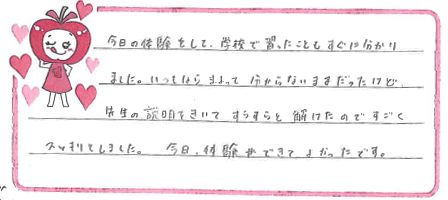 今日の体験をして、学校で習ったこともすぐに分かり
ました。いつもなら まよって 分からないままだったけど、
先生の説明をきいて すらすらと 解けたのですごく
スッキリしました。 今日、体験ができて よかったです。